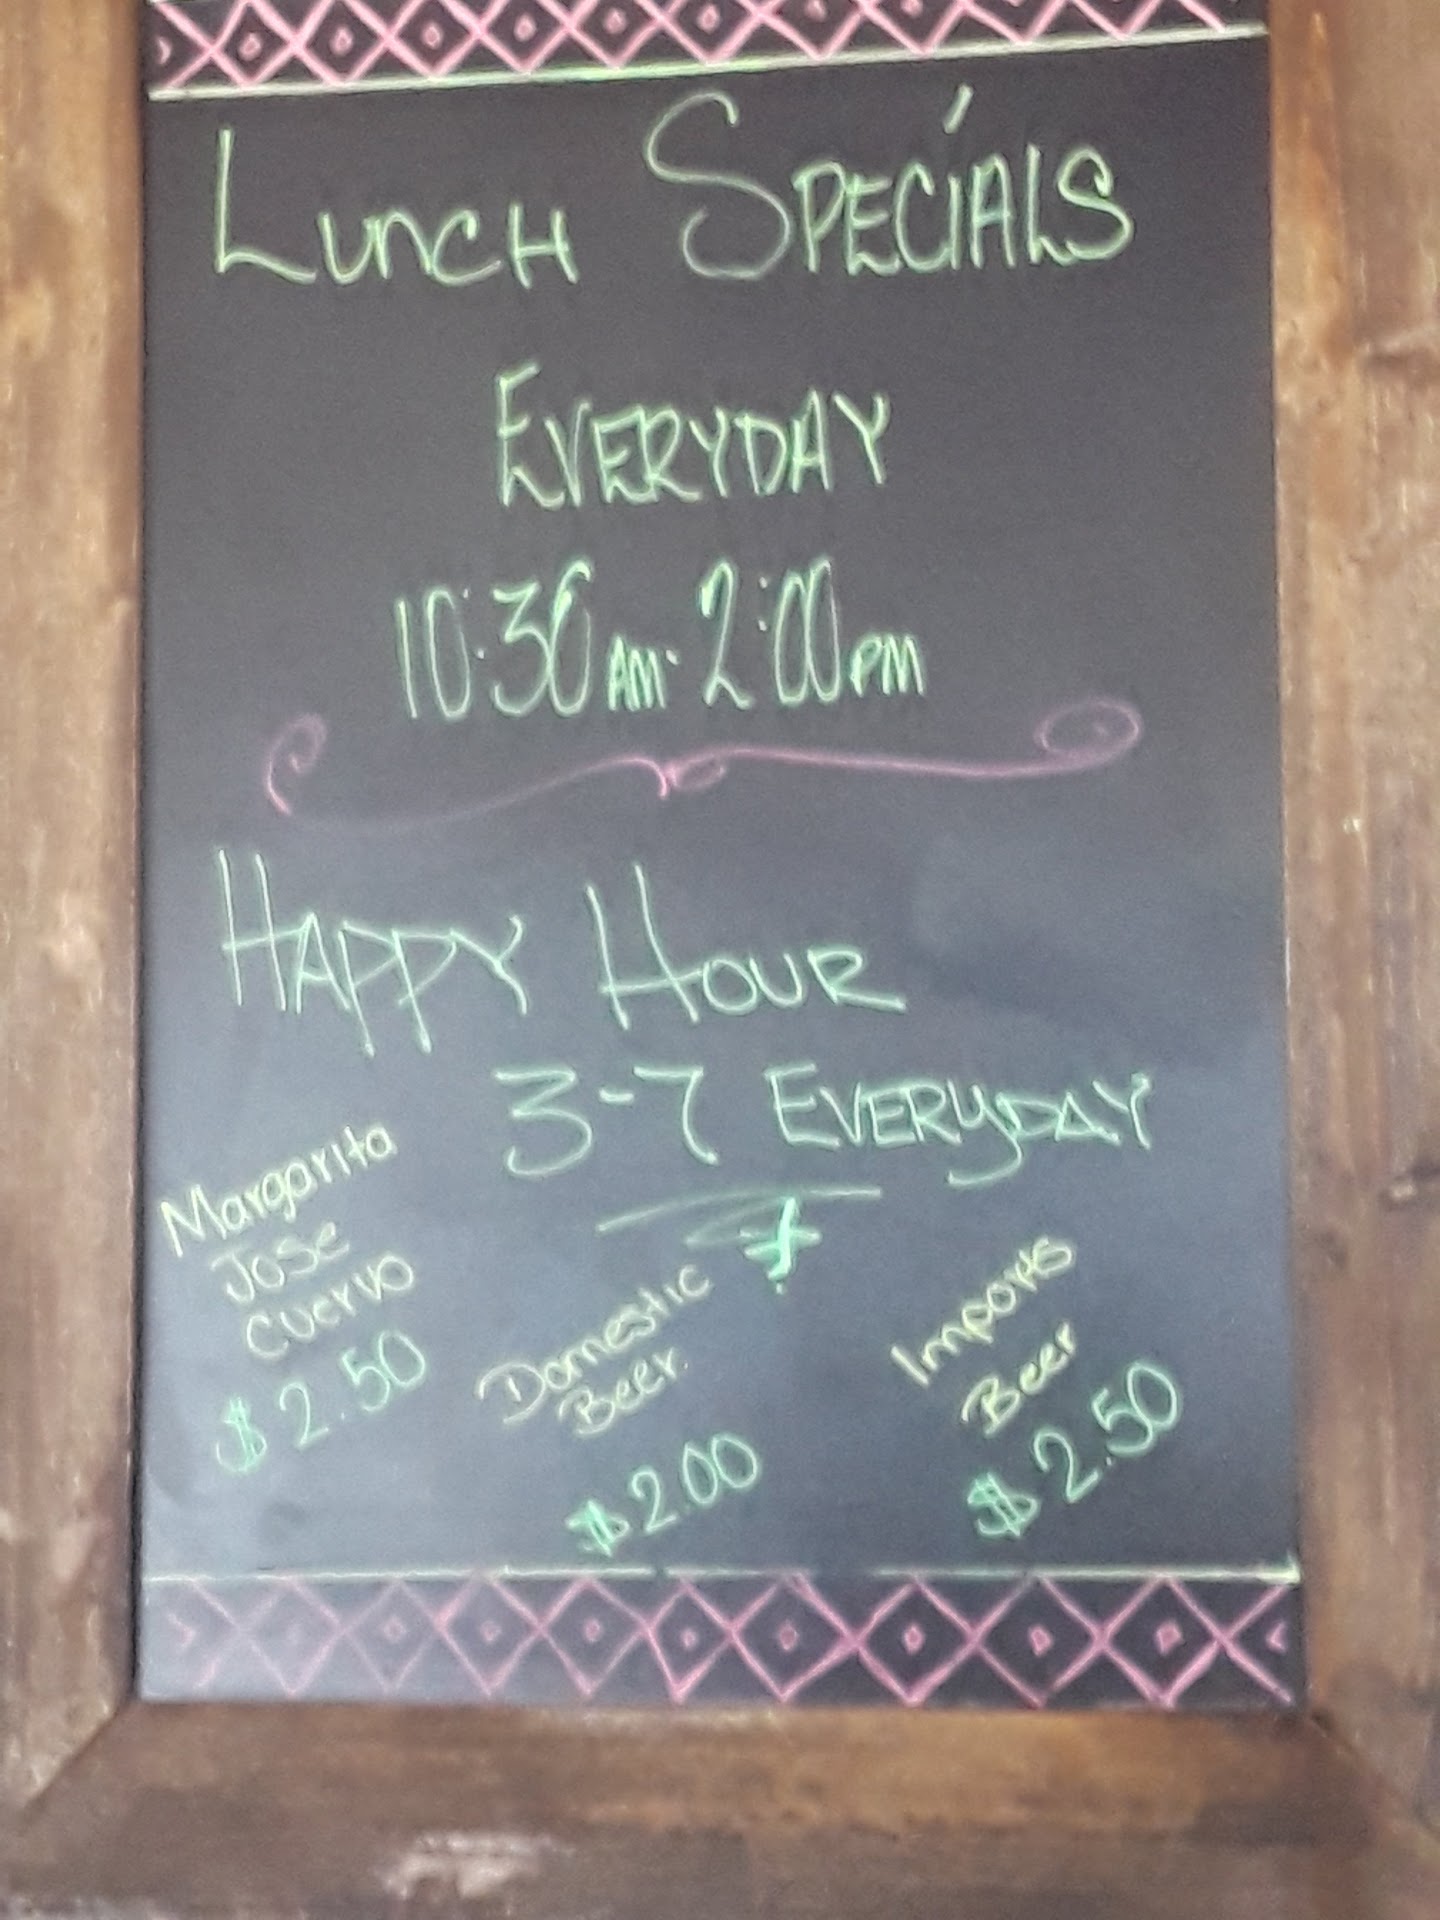 LUNCH SPECIALS
EVERYDAY
10:30AM-2:00PM
HAPPY HOUR
3-7 EVERYDAY
Margarita
Jose
Cuervo
$2.50
Domestic
Beer
$2.00
Imports
Beer
$2.50